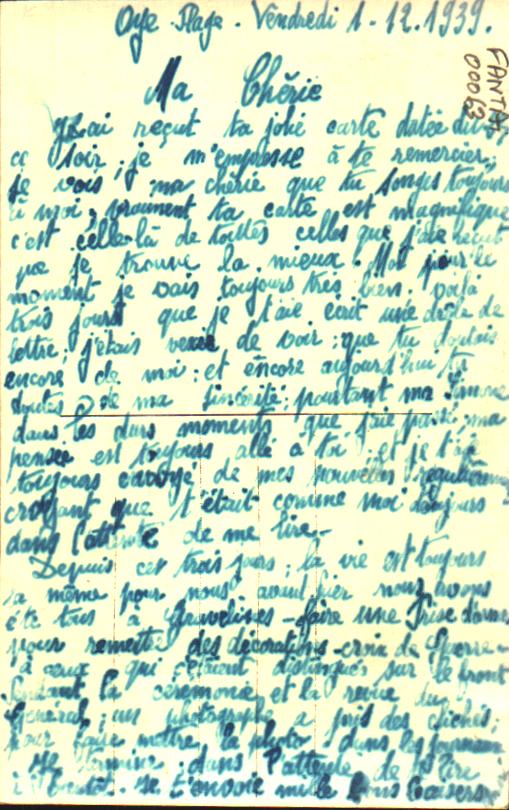 Oye-Plage - Vendredi 1-12.1939.
FANTIN
00063
Ma Chérie
J'ai reçut ta jolie carte datée du
ce soir, je m'empresse à te remercier,
je vois, ma chérie que tu songes toujours
à moi, vraiment ta carte est magnifique
c'est celle-là de toutes celles que j'aie reçut
que je trouve la mieux. Moi pour le
moment je vais toujours très bien. voilà
trois jours que je t'aie écrit une drôle de
lettre; j'étais vexé de voir; que tu doutais
encore de moi; et encore aujourd'hui tu
doutes de ma sincérité; pourtant ma Simone
dans les durs moments que j'aie passé; ma
pensée est toujours allé à toi et je t'aie
toujours envoyé de mes nouvelles régulièrement
croyant que t'était comme moi toujours
dans l'attente de me lire.-
Depuis cet trois jours; la vie est toujours
la même pour nous avant-hier nous avons
été tous à Gravelines - faire une Prise d'armes
pour remettre des décorations - croix de Guerre -
à ceux qui s'étaient distingués sur le front
Pendant la cérémonie et la revue du
Général; un photographe a pris des clichés;
pour faire mettre la photo dans les journaux
Je termine; dans l'attente de te lire
à bientôt. Je t'envoie mille bons baisers